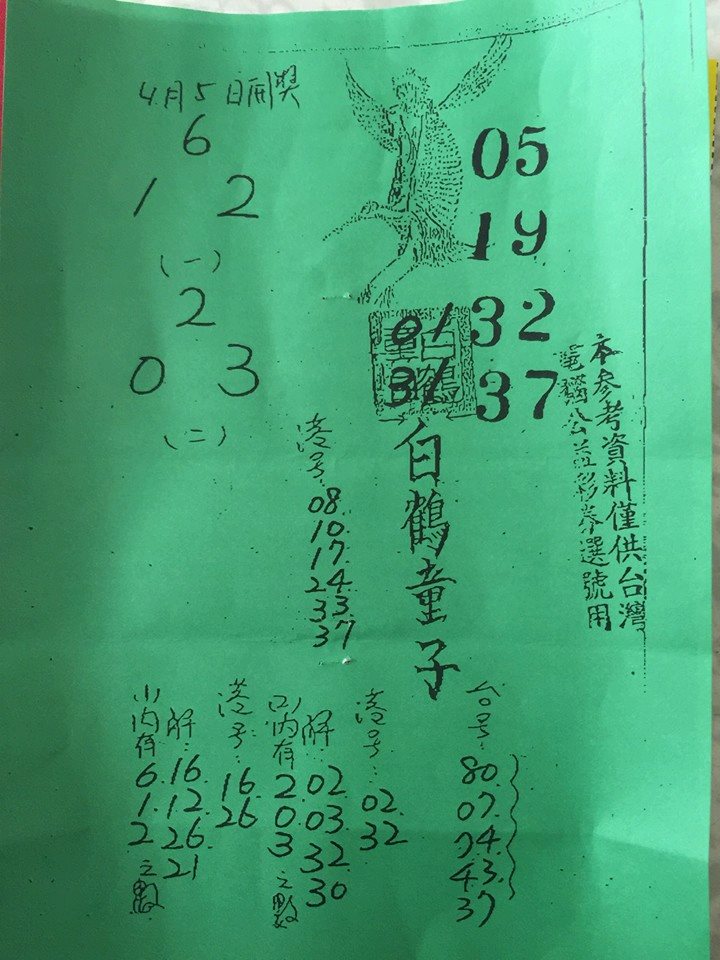 4月5日開獎
6
1 2
(一)
2
0 3
(二)
05
19
32
37
01
31
白鶴
童子
本參考資料僅供台灣
電腦公益彩券選號用
白鶴童子
港号:
08.
10.
17.
24.
33.
37
台号:
80.
07.
74.
43.
37
港号:
02.
32
解:
02.
03.
32.
30
口内有
2.
0.
3
之數
港号:
16.
26
解:
16.
12.
26.
21
山内有
6.
1.
2
之數